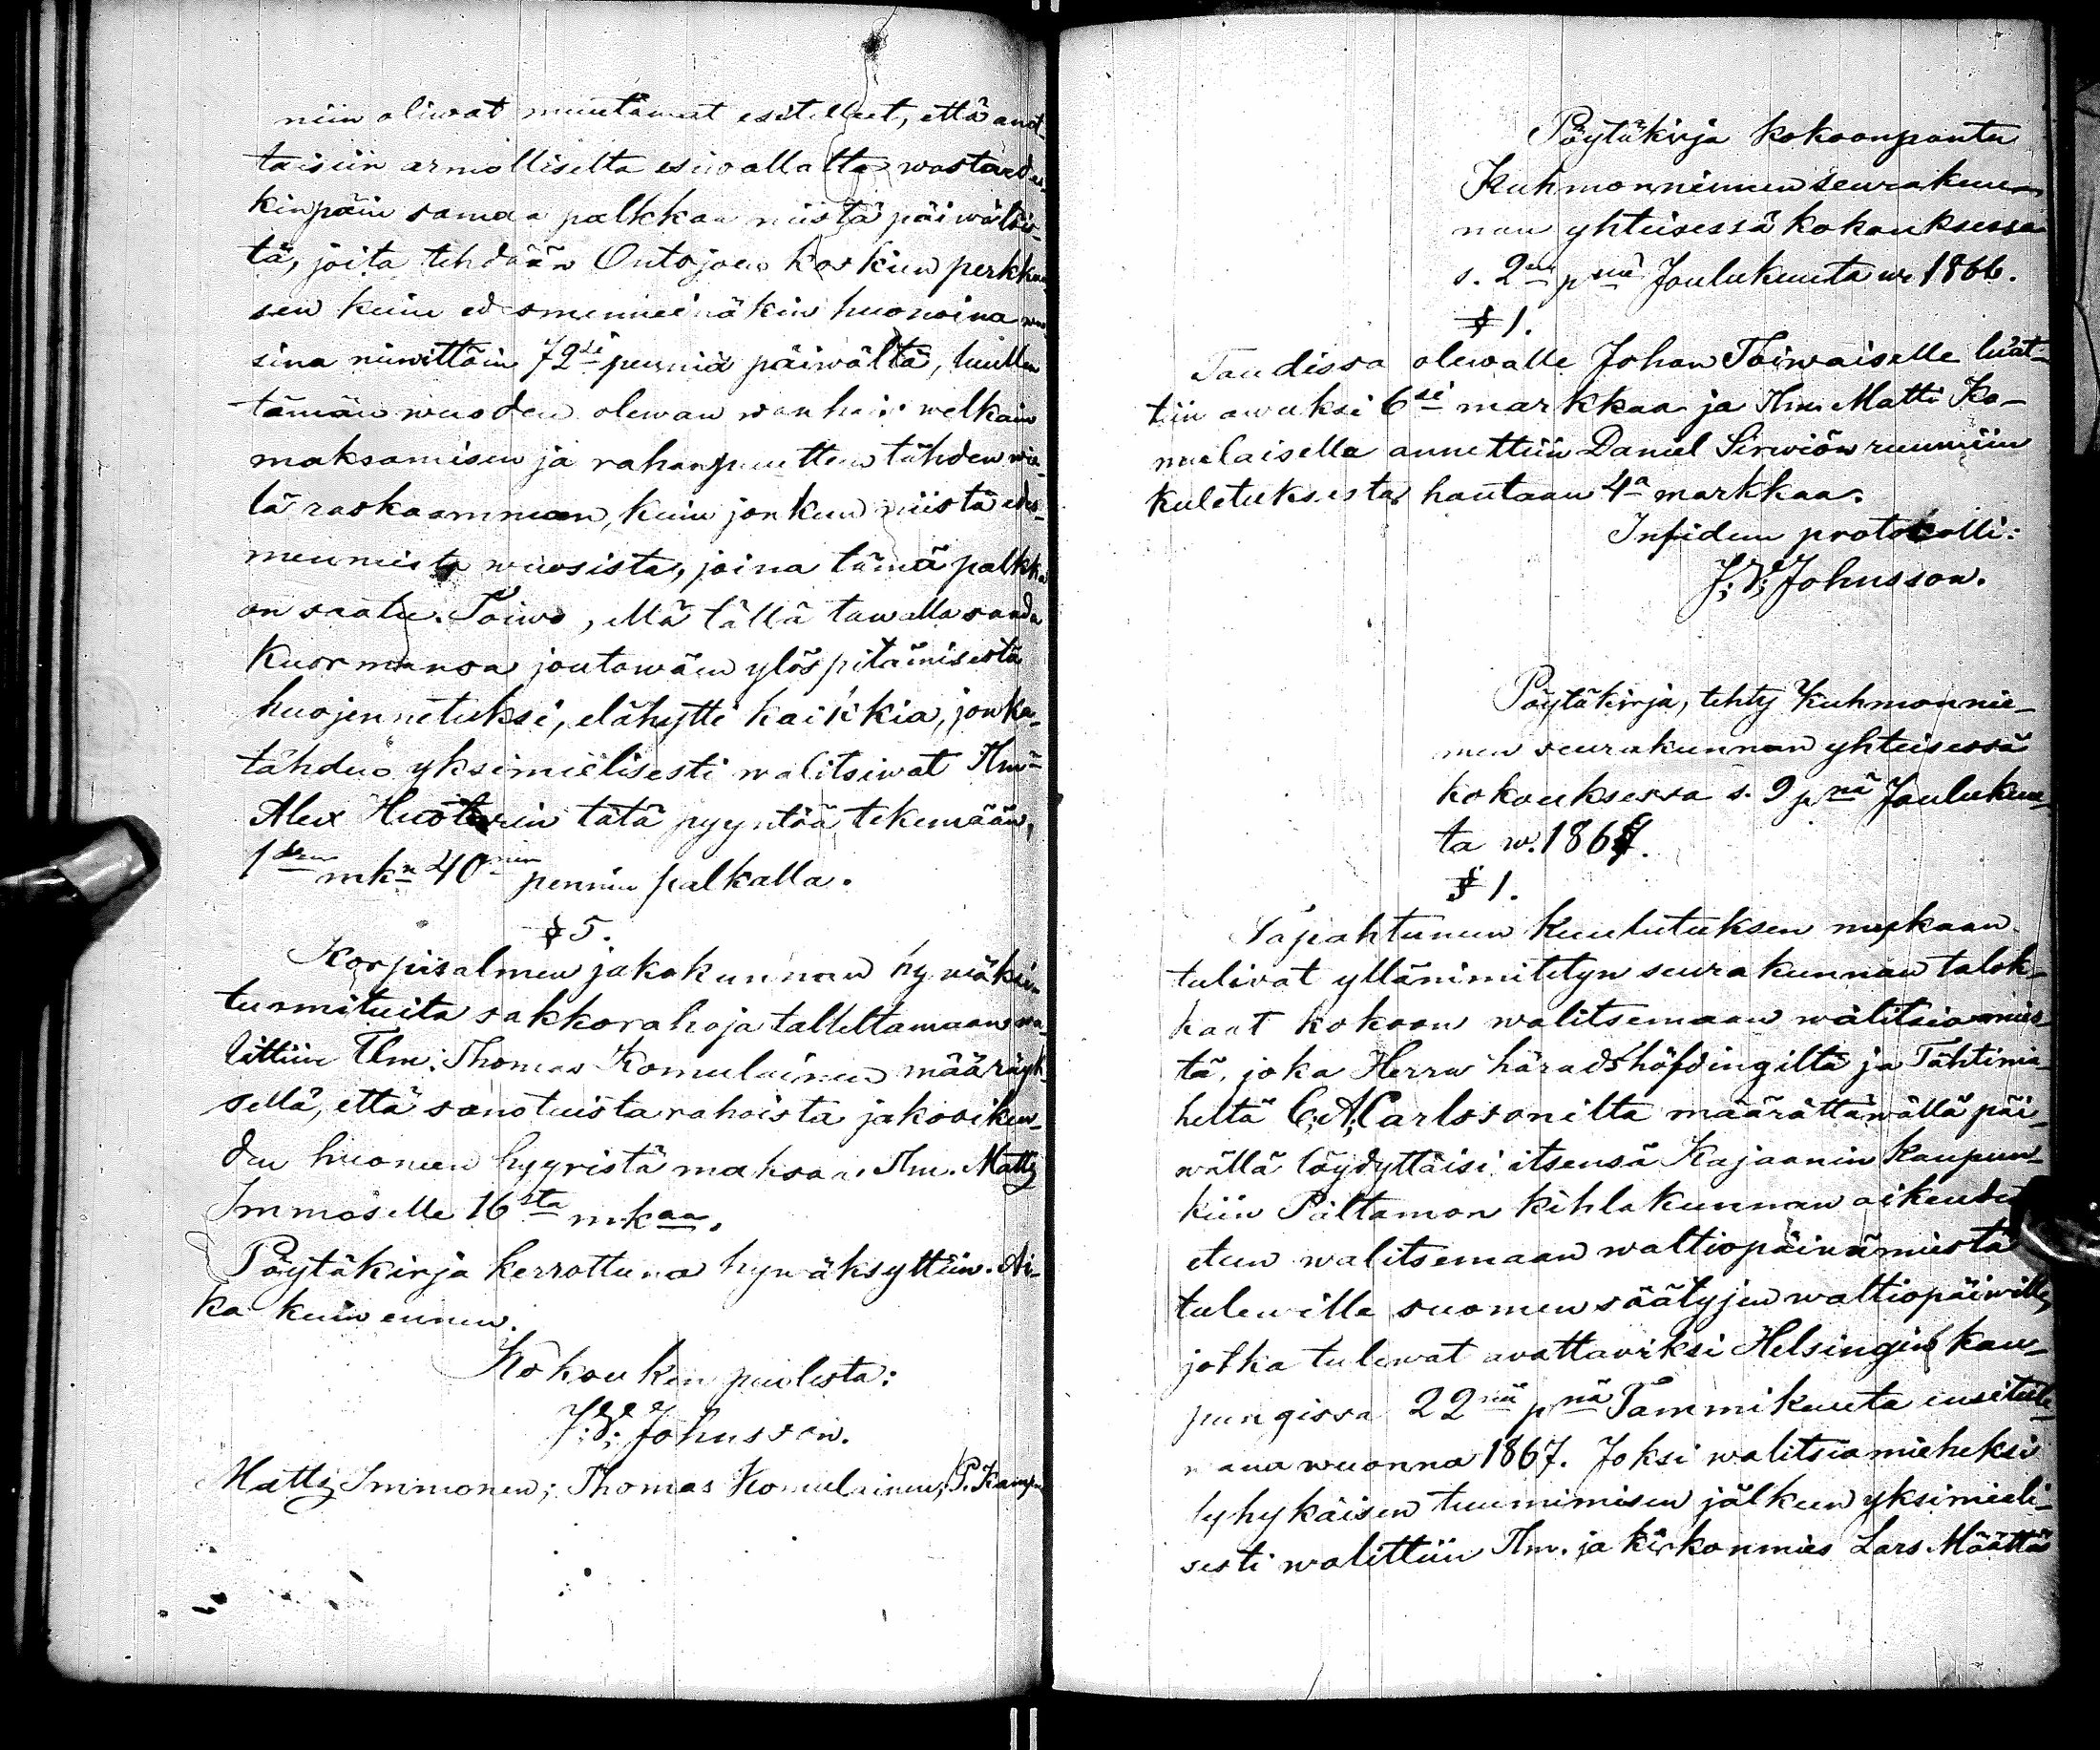 niin oliwat muutamat esitelleet, että anot-
taisiin armolliselta esiwallalta wastaede-
kinpäin samaa palkkaa niistä päiwätöis-
tä, joita tehdään Ontojoen koskien perkkau-
sen kuin edesmenneinäkin huonoina wuo-
sina niinittäin 72si penniä päiwältä, luullen
tämän wuoden olewan wanhain welkain
maksamisen ja rahanpuutten tähden wie-
lä raskaamman, kuin jonkun niistä edes-
menneista wuosista, joina tämä palkka
on saatu. Toiwo, että tällä tawalla saada
kuormansa joutawäen ylöspitämisestä
huojennetuksi, elähytti kaikkia, jonka-
tähden yksimielisesti walitsiwat Tlmn
Alex Huotarin tätä pyyntöä tekemään,
1den mkn 40nen pennin palkalla.
§ 5.
Korpisalmen jakokunnan hywäksi
tuomituita sakkorahoja talleltamaan wa-
littiin Tlm: Thomas Komulainen määräyk-
sellä, että sanotuista rahoista jakooikeu-
den huoneen hyyristä maksaa Tlm. Matts
Immoselle 16sta mkaa.
Pöytäkirja kerrottuna hywäksyttiin. Ai-
ka kuin ennen.
Kokouksen puolesta:
J: V: Johnsson.
Matts Immonen; Thomas Komulainen; P. Kamp
Pöytäkirja kokoonpantu
Kuhmonniemen seurakun-
nan yhteisessä kokouksessa
s. 2na pnä Joulukuuta w. 1866.
§ 1.
Taudissa olewalle Johan Toiwaiselle luat-
tiin awuksi 6si markkaa ja Tlm. Matti Ko-
mulaiselle annettiin Daniel Sirwiön ruumiin
kuletuksesta hautaan 4ä markkaa.
In fidem protocolli:
J: V: Johnsson.
Pöytäkirja, tehty Kuhmonnie-
men seurakunnan yhteisessä
kokouksessa s. 9 pnä Jouluku-
ta w. 1866.
§ 1.
Tapahtunen kuulutuksen mukaan
tulivat yllänimitetyn seurakunnan talok-
kaat kokoon walitsemaan walitsiamies-
tä, joka Herra häradshöfdingiltä ja Tähtimie-
heltä C: A: Carlssonilta määrättäwällä päi-
wällä löydyttäisi itsensä Kajaanin kaupun-
kiin Paltamon kihlakunnan oikeuden
eteen walitsemaan waltiopäiwämiestä
tulewille suomen säätyjen waltiopäiwille,
jotka tulewat avattawiksi Helsingin kau-
pungissa 22nä pnä Tammikuuta ensitule-
wana wuonna 1867. Joksi walitsiamieheksi
lyhykäisen tuumimisen jälkeen yksimieli-
sesti walittiin Tlm. ja kirkonmies Lars Määttä